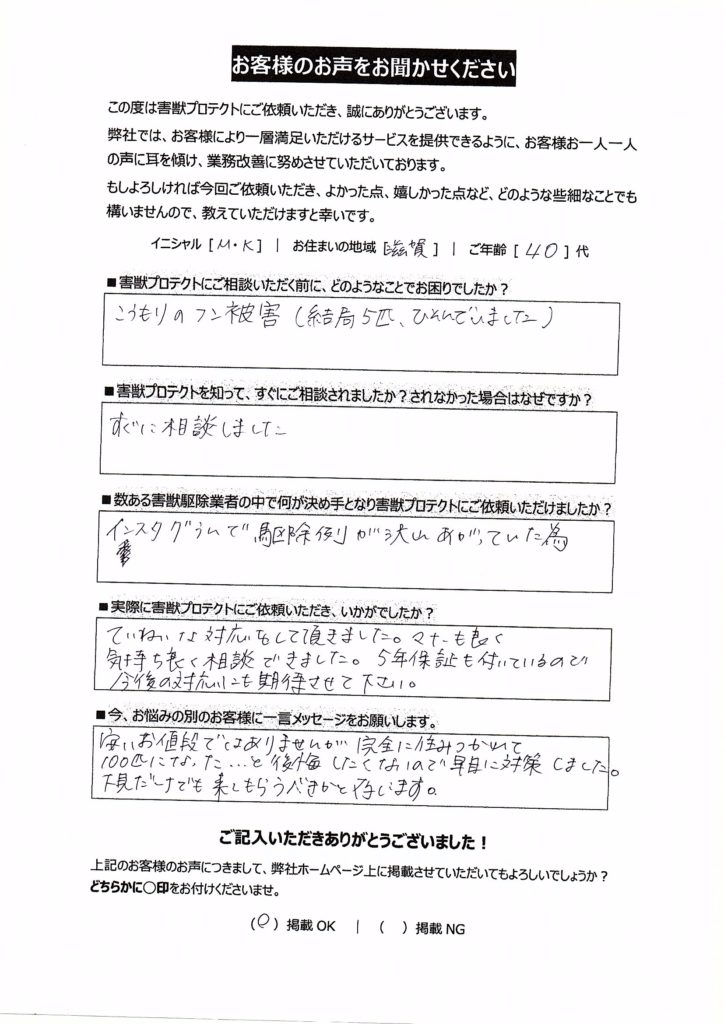 お客様のお声をお聞かせください
この度は害獣プロテクトにご依頼いただき、誠にありがとうございます。
弊社では、お客様により一層満足いただけるサービスを提供できるように、お客様お一人一人
の声に耳を傾け、業務改善に努めさせていただいております。
もしよろしければ今回ご依頼いただき、よかった点、嬉しかった点など、どのような些細なことでも
構いませんので、教えていただけますと幸いです。
イニシャル [ M・K ] | お住まいの地域 [ 滋賀 ] | ご年齢 [ 40 ] 代
■害獣プロテクトにご相談いただく前に、どのようなことでお困りでしたか？
こうもりのフン被害(結局5匹、ひそんでいました)
■害獣プロテクトを知って、すぐにご相談されましたか？されなかった場合はなぜですか？
すぐに相談しました
■数ある害獣駆除業者の中で何が決め手となり害獣プロテクトにご依頼いただけましたか？
インスタグラムで駆除例が沢山あがっていた為
■実際に害獣プロテクトにご依頼いただき、いかがでしたか？
ていねいな対応をして頂きました。マナーも良く
気持ち良く相談できました。5年保証も付いているので
今後の対応にも期待させて下さい。
■今、お悩みの別のお客様に一言メッセージをお願いします。
安いお値段ではありませんが完全に住みつかれて
100匹になった…と後悔したくないので早目に対策しました。
下見だけでも来てもらうべきかと存じます。
ご記入いただきありがとうございました！
上記のお客様のお声につきまして、弊社ホームページ上に掲載させていただいてもよろしいでしょうか？
どちらかに〇印をお付けくださいませ。
(○) 掲載 OK | ( ) 掲載 NG